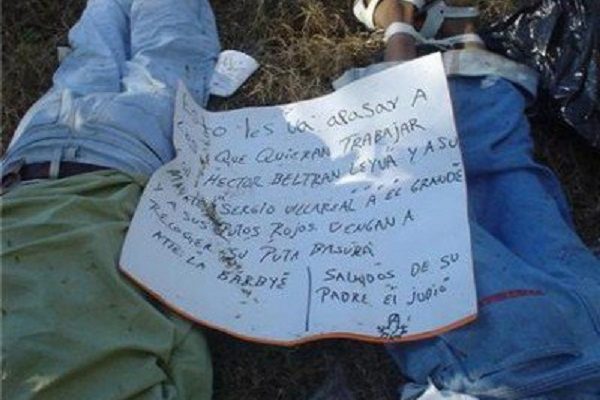 les va apasar A
QUE QUIERAN TRABAJAR
HECTOR BELTRAN LEYVA Y A SU
SERGIO VILLAREAL Á EL GRANDE
Y A SUS PUTOS ROJOS. VENGAN A
RECOGER SU PUTA BASURA
ATTE. LA BARBYE
SALUDOS DE SU
PADRE EL JUDIO